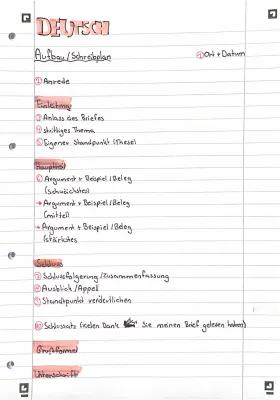 DEUTSCH
Aufbau/Schreibplan
① Ort + Datum
② Anrede
Einleitung
③ Anlass des Briefes
④ strittiges Thema
⑤ Eigener Standpunkt (These)
Hauptteil
⑥ Argument + Beispiel/Beleg
(schwächstes)
→ Argument + Beispiel/Beleg
(mittel)
→ Argument + Beispiel/Beleg
(stärkstes
Schluss
⑦ Schlussfolgerung/Zusammenfassung
⑧ Ausblick/Appell
⑨ Standpunkt verdeutlichen
⑩ Schlusssatz (vielen Dank Sie meinen Brief gelesen haben)
Grußformel
Unterschrift